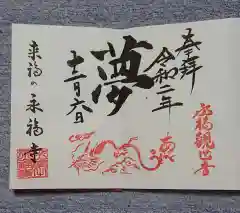 奉拝
令和二年
夢
十二月六日
来福の永福寺